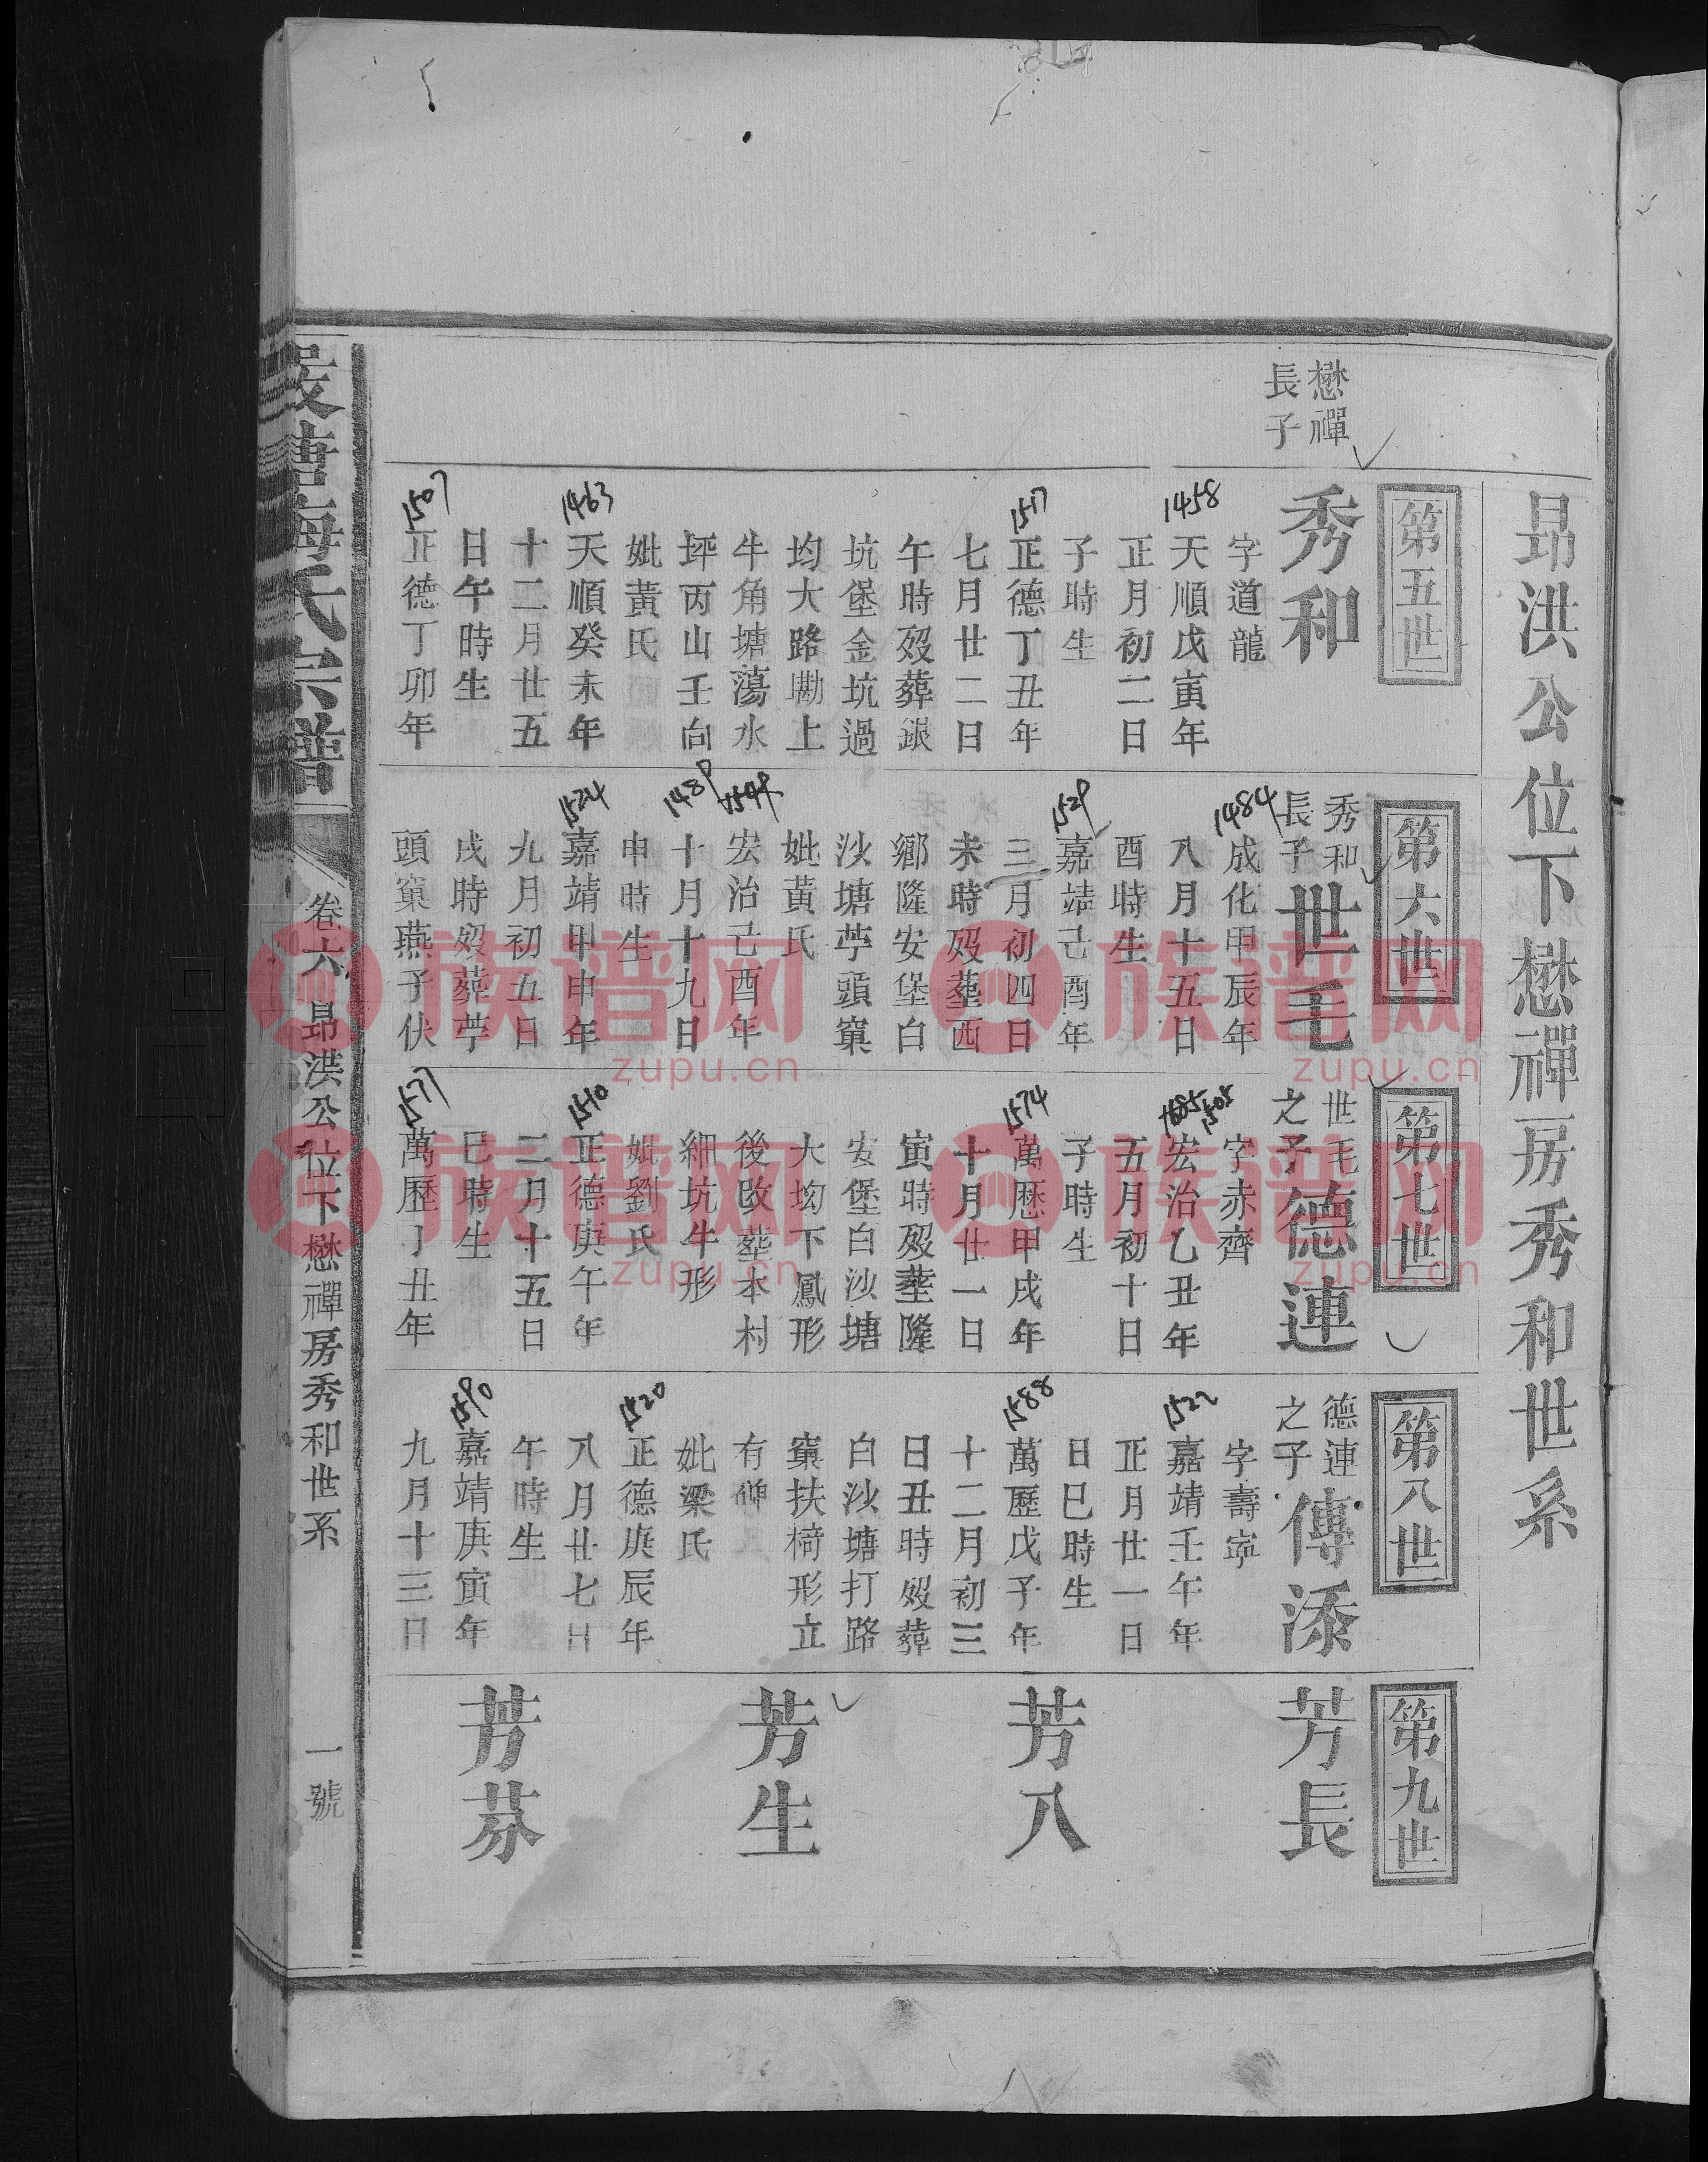 昂洪公位下懋禪房秀和世系
第五世
懋禪
長子
秀和
字道龍
1458
天順戊寅年
正月初二日
子時生
1517
正德丁丑年
七月廿二日
午時歿葬銀
坑堡金坑過
均大路墈上
牛角塘蕩水
坪丙山壬向
妣黃氏
1463
天順癸未年
十二月廿五
日午時生
1507
正德丁卯年
第六世
秀和
長子
世毛
1484
成化甲辰年
八月十五日
酉時生
1529
嘉靖己酉年
三月初四日
未時歿塟西
鄉隆安堡白
沙塘苧頭窠
妣黃氏
1549
宏治己酉年
1489
十月十九日
申時生
1524
嘉靖甲申年
九月初五日
戌時歿葬苧
頭窠燕子伏
第七世
世毛
之子
德連
字赤齊
1505
宏治乙丑年
五月初十日
子時生
1574
萬歷甲戌年
十月廿一日
寅時歿塟隆
安堡白沙塘
大坳下鳳形
後改塟本村
細坑牛形
妣劉氏
1510
正德庚午年
二月十五日
巳時生
1577
萬歷丁丑年
第八世
德連
之子
傳添
字壽寧
1522
嘉靖壬午年
正月廿一日
日巳時生
1588
萬歷戊子年
十二月初三
日丑時歿葬
白沙塘打路
窠扶椅形立
有碑
妣梁氏
1520
正德庚辰年
八月廿七日
午時生
1590
嘉靖庚寅年
九月十三日
第九世
芳長
芳八
芳生
芳芬
嚴塘梅氏宗譜
卷六 昂洪公位下懋禪房秀和世系
一號
族谱网
zupu.cn
族谱网
zupu.cn
族谱网
zupu.cn
族谱网
zupu.cn